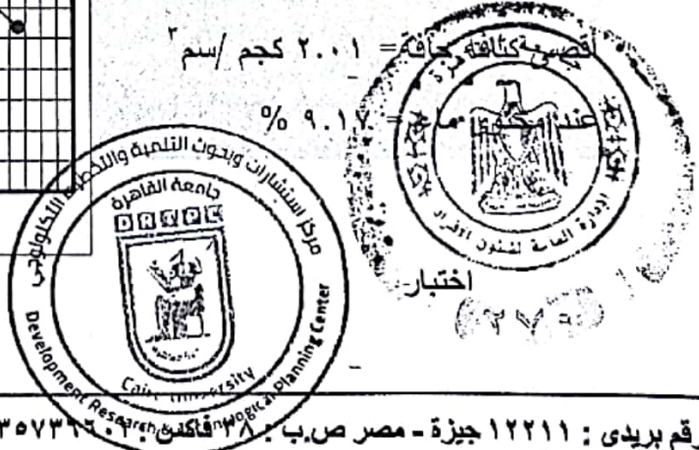 أقصى كثافة جافة = ٢.٠٠١ كجم /سم٣
عند محتوى = ٩.١٧ %
مركز استشارات وبحوث التنمية والتخطيط التكنولوجي
جامعة القاهرة
DRTPC
Cairo University
Development Research & Technological Planning Center
الإدارة العامة لشئون الأفراد
اختبار
رقم بريدى : ١٢٢١١ جيزة - مصر ص.ب : ٣٨ فاكس :